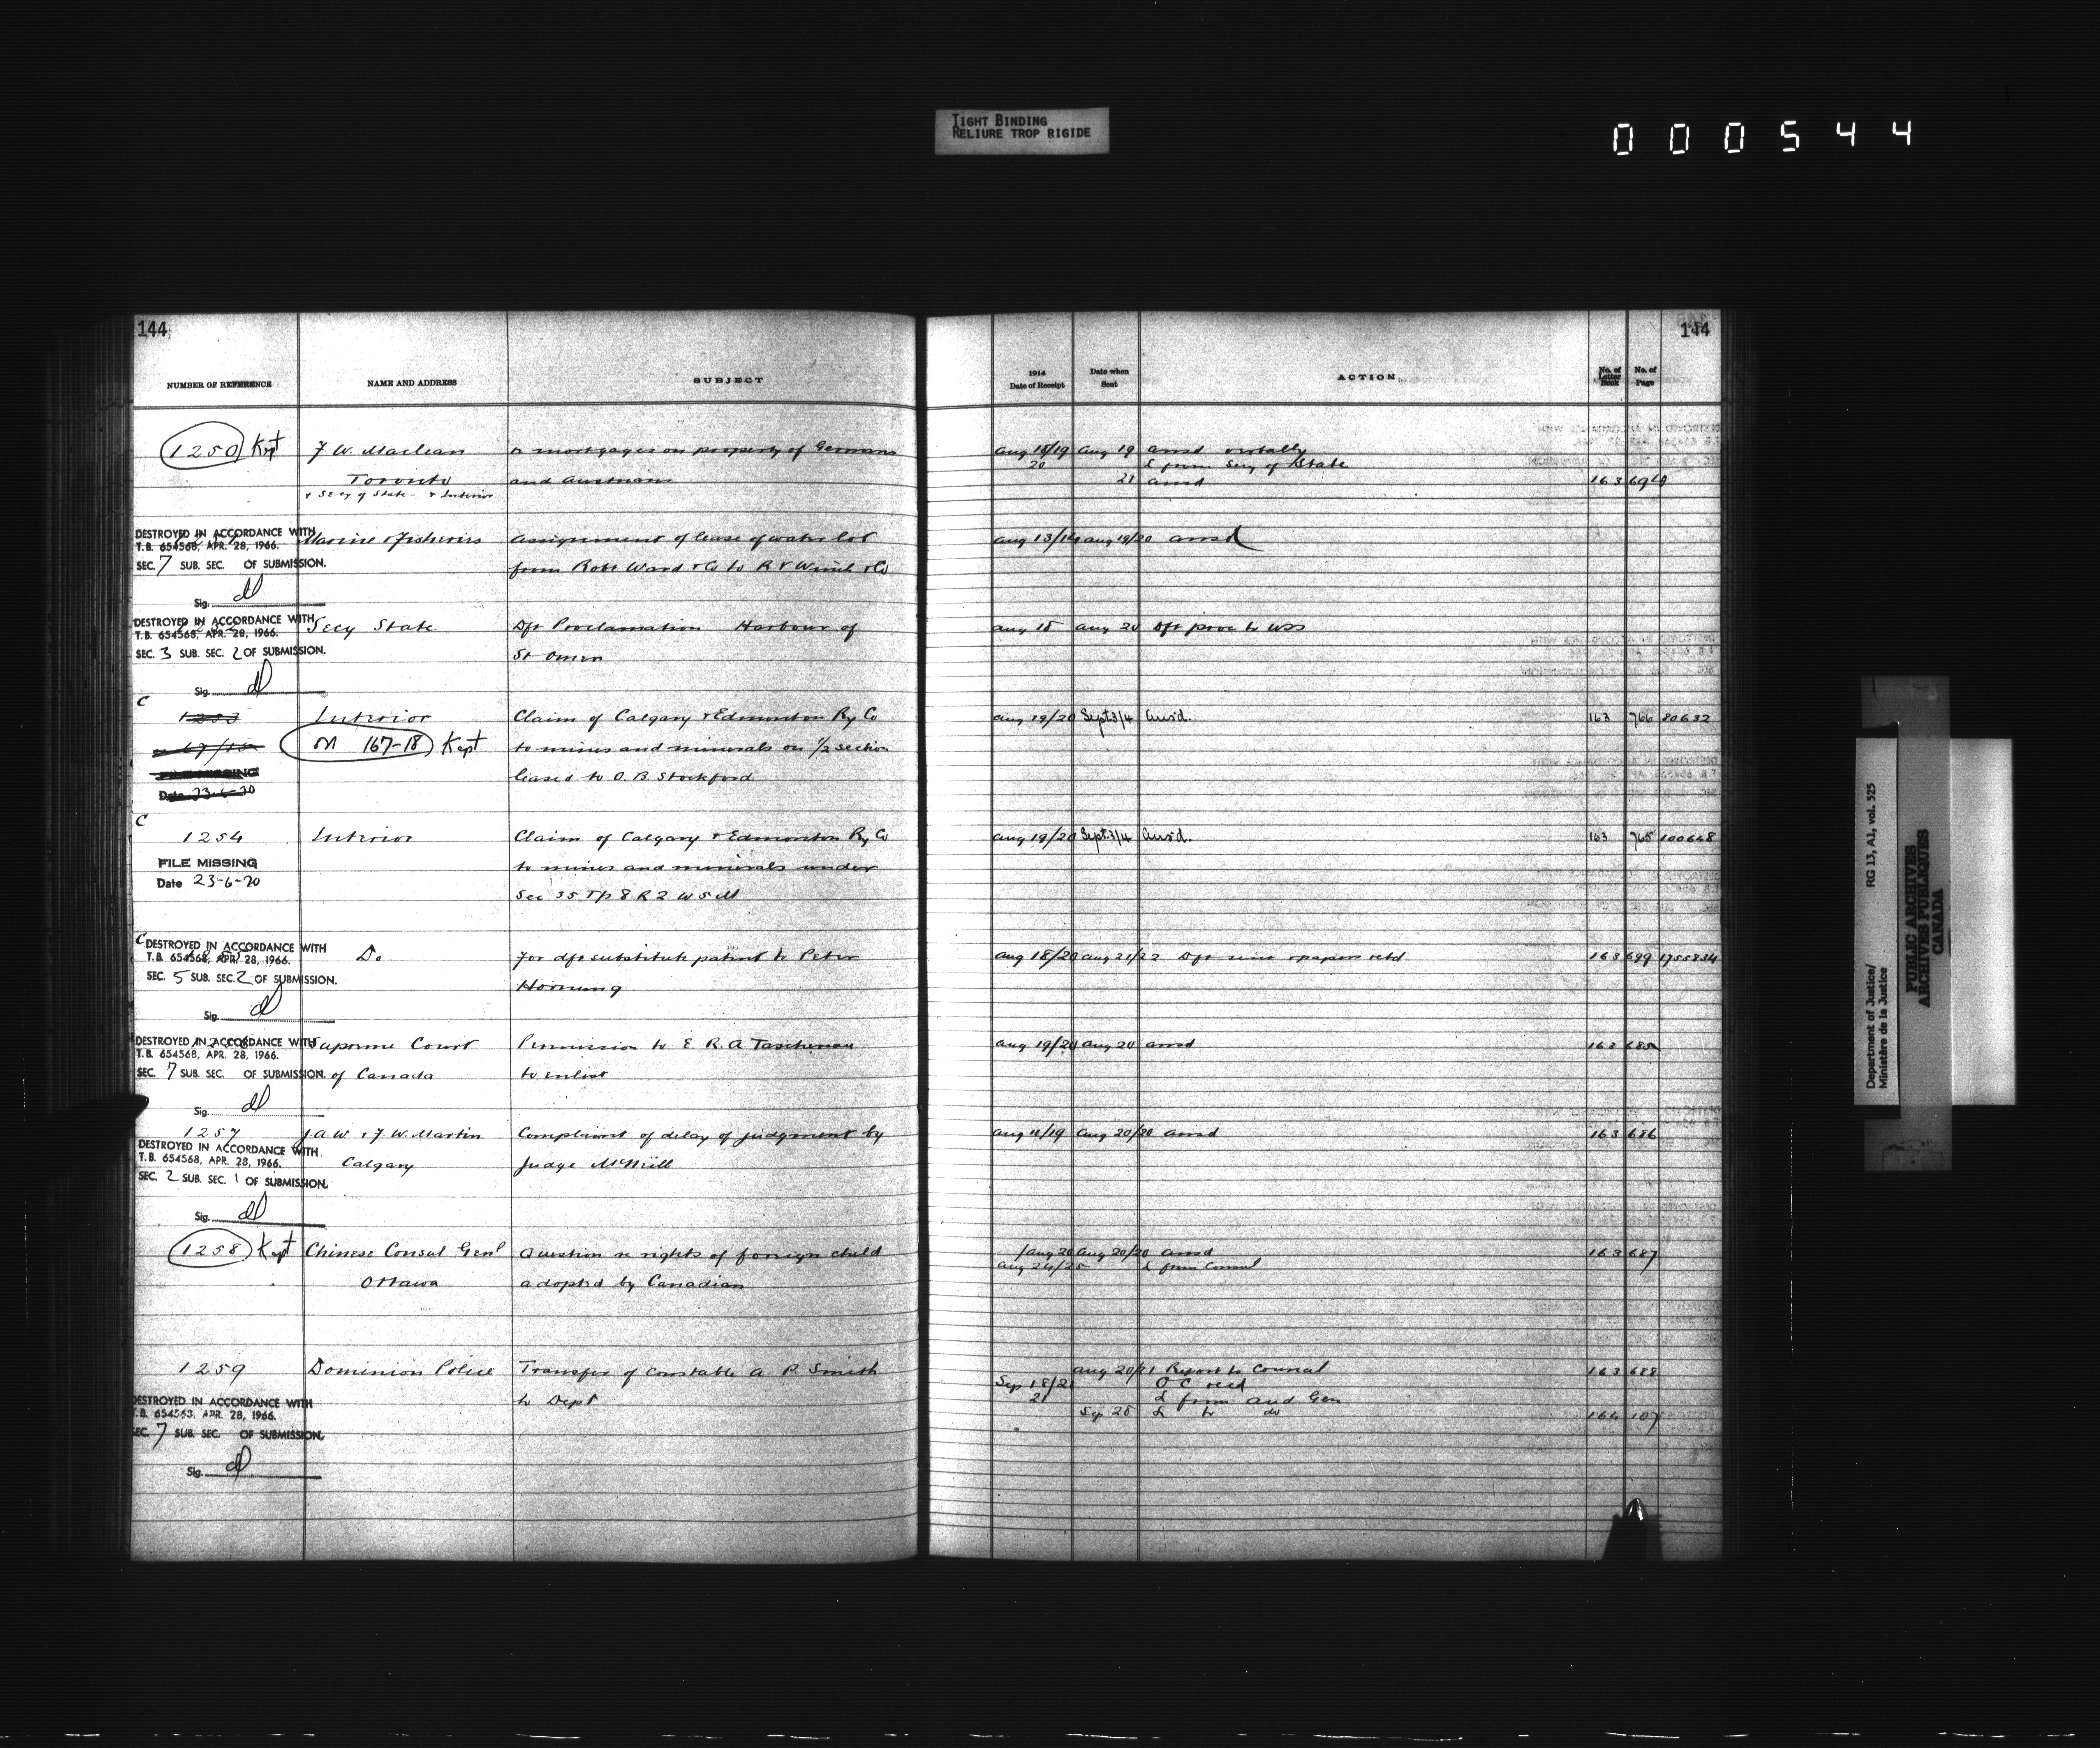 TIGHT BINDING
RELIURE TROP RIGIDE
000544
144
144
NUMBER OF REFERENCE NAME AND ADDRESS SUBJECT 1914 Date of Receipt Date when Sent ACTION No. of Letter Book No. of Page
1250 Kept F W. Maclean re mortgages on property of Germans Aug 18/19 Aug 19 ansd verbally
Toronto and Austrians 20 L from Secy of State
+ Secy of State + Interior 21 ansd 163
DESTROYED IN ACCORDANCE WITH
T.B. 654568, APR. 28, 1966.
SEC. 7 SUB. SEC. OF SUBMISSION.
Sig.
Marine & Fisheries Assignment of lease of water lot Aug 13/14 Aug 19/20 ansd
from Robt Ward & Co to R V Winch & Co
DESTROYED IN ACCORDANCE WITH
T.B. 654568, APR. 28, 1966.
SEC. 3 SUB. SEC. 2 OF SUBMISSION.
Sig.
Secy State Dft Proclamation Harbour of Aug 18 Aug 20 Dft proc to
St Omer
C
1253 Interior Claim of Calgary & Edmonton Ry Co Aug 19/20 Sept 3/4 Ans'd. 163 766 80632
M 167-18 Kept to mines and minerals on 1/2 section
FILE MISSING leased to O. B. Stockford
Date 23-6-20
C
1254 Interior Claim of Calgary & Edmonton Ry Co Aug 19/20 Sept. 3/4 Ans'd. 163 765 100648
FILE MISSING to mines and minerals under
Date 23-6-20 Sec 35 Tp 8 R 2 W 5 M
C
DESTROYED IN ACCORDANCE WITH
T.B. 654568, APR. 28, 1966.
SEC. 5 SUB. SEC. 2 OF SUBMISSION.
Sig.
Do For dft substitute patent to Peter Aug 18/20 Aug 21/22 Dft sent & papers retd 163 699 1755834
Hornung
DESTROYED IN ACCORDANCE WITH
T.B. 654568, APR. 28, 1966.
SEC. 7 SUB. SEC. OF SUBMISSION.
Sig.
Supreme Court Permission to E. R. A Taschereau Aug 19/20 Aug 20 ansd 163 685
of Canada to enlist
1257 J. A W & F. W. Martin Complaint of delay of judgment by Aug 11/19 Aug 20/20 ansd 163 686
Calgary Judge McNeill
DESTROYED IN ACCORDANCE WITH
T.B. 654568, APR. 28, 1966.
SEC. 2 SUB. SEC. 1 OF SUBMISSION.
Sig.
1258 Kept Chinese Consul Genl Question re rights of foreign child /Aug 20 Aug 20/20 ansd 163 687
Ottawa adopted by Canadian Aug 24/25 L from Consul
1259 Dominion Police Transfer of Constable A P. Smith Aug 20/21 Report to Council 163 688
to Dept Sep 18/21 O C recd
21 L from Aud Gen
Sep 28 L to do 164 107
DESTROYED IN ACCORDANCE WITH
T.B. 654563, APR. 28, 1966.
SEC. 7 SUB. SEC. OF SUBMISSION.
Sig.
Department of Justice/ RG 13, A1, vol. 525
Ministère de la Justice
PUBLIC ARCHIVES
ARCHIVES PUBLIQUES
CANADA